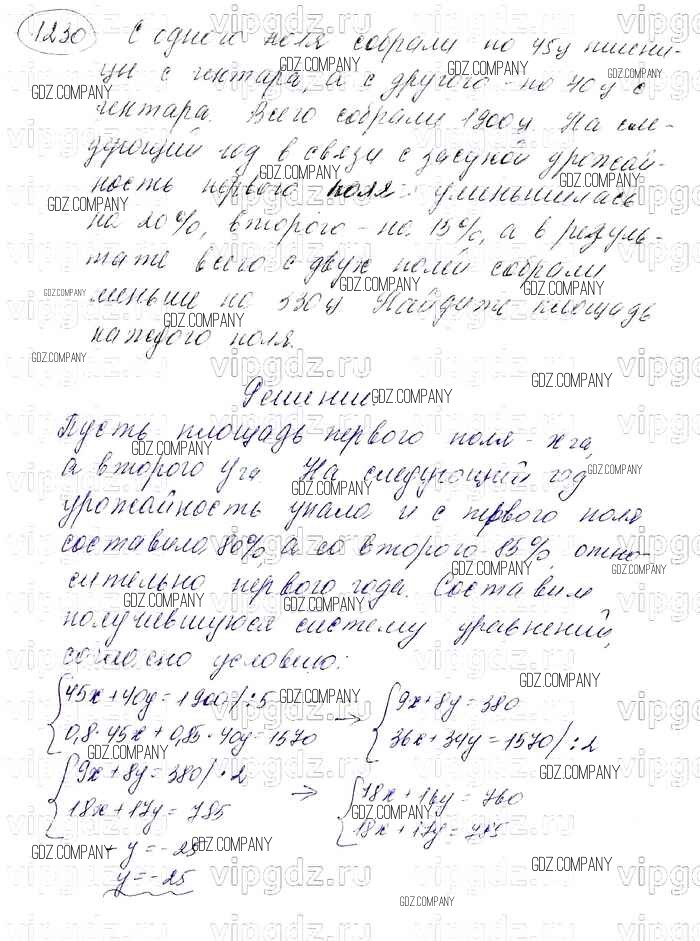 1230 С одного поля собрали по 45ц пшени-
цы с гектара, а с другого - по 40 ц с
гектара. Всего собрали 1900ц. На сле-
дующий год в связи с засухой урожай-
ность первого поля уменьшилась
на 20%, второго - на 15%, а в резуль-
тате всего с двух полей собрали
меньше на 330ц Найдите площадь
каждого поля.
Решение
Пусть площадь первого поля - x га,
а второго yга. На следующий год
урожайность упала и с первого поля
составила 80%, а со второго 85%, отно-
сительно первого года. Составим
получившуюся систему уравнений,
согласно условию:
{45x+40y=1900/:5 → {9x+8y=380
0,8·45x+0,85·40y=1570 36x+34y=1570/:2
{9x+8y=380/·2 → {18x+16y=760
18x+17y=785 18x+17y=785
-y=-25
y=-25
GDZ.COMPANY
vipgdz.ru